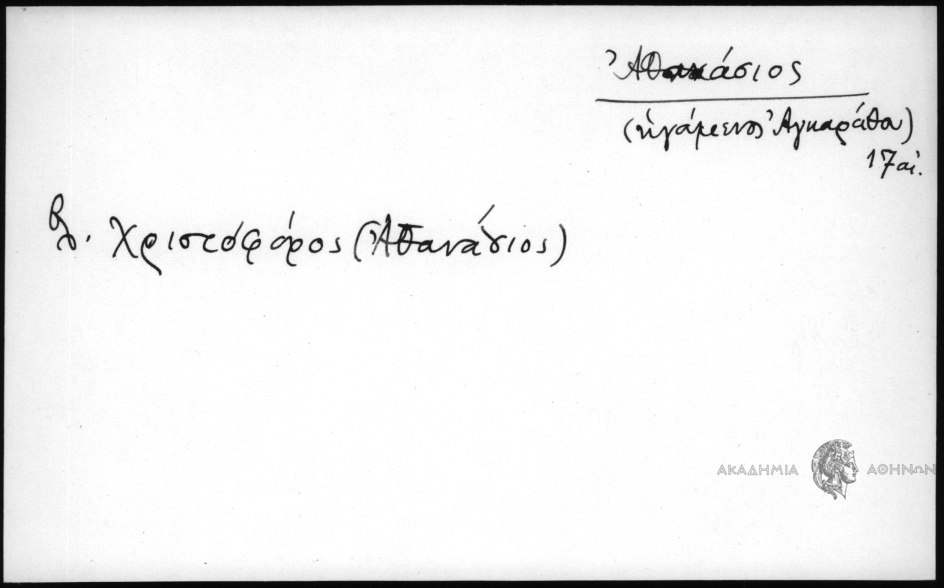 Ἀθανάσιος
(ἡγούμενος Ἀγκαράθου)
17 αἰ.
βλ. Χριστόφορος (Ἀθανάσιος)
ΑΚΑΔΗΜΙΑ ΑΘΗΝΩΝ